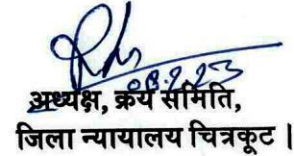 08.9.23
अध्यक्ष, क्रय समिति,
जिला न्यायालय चित्रकूट |